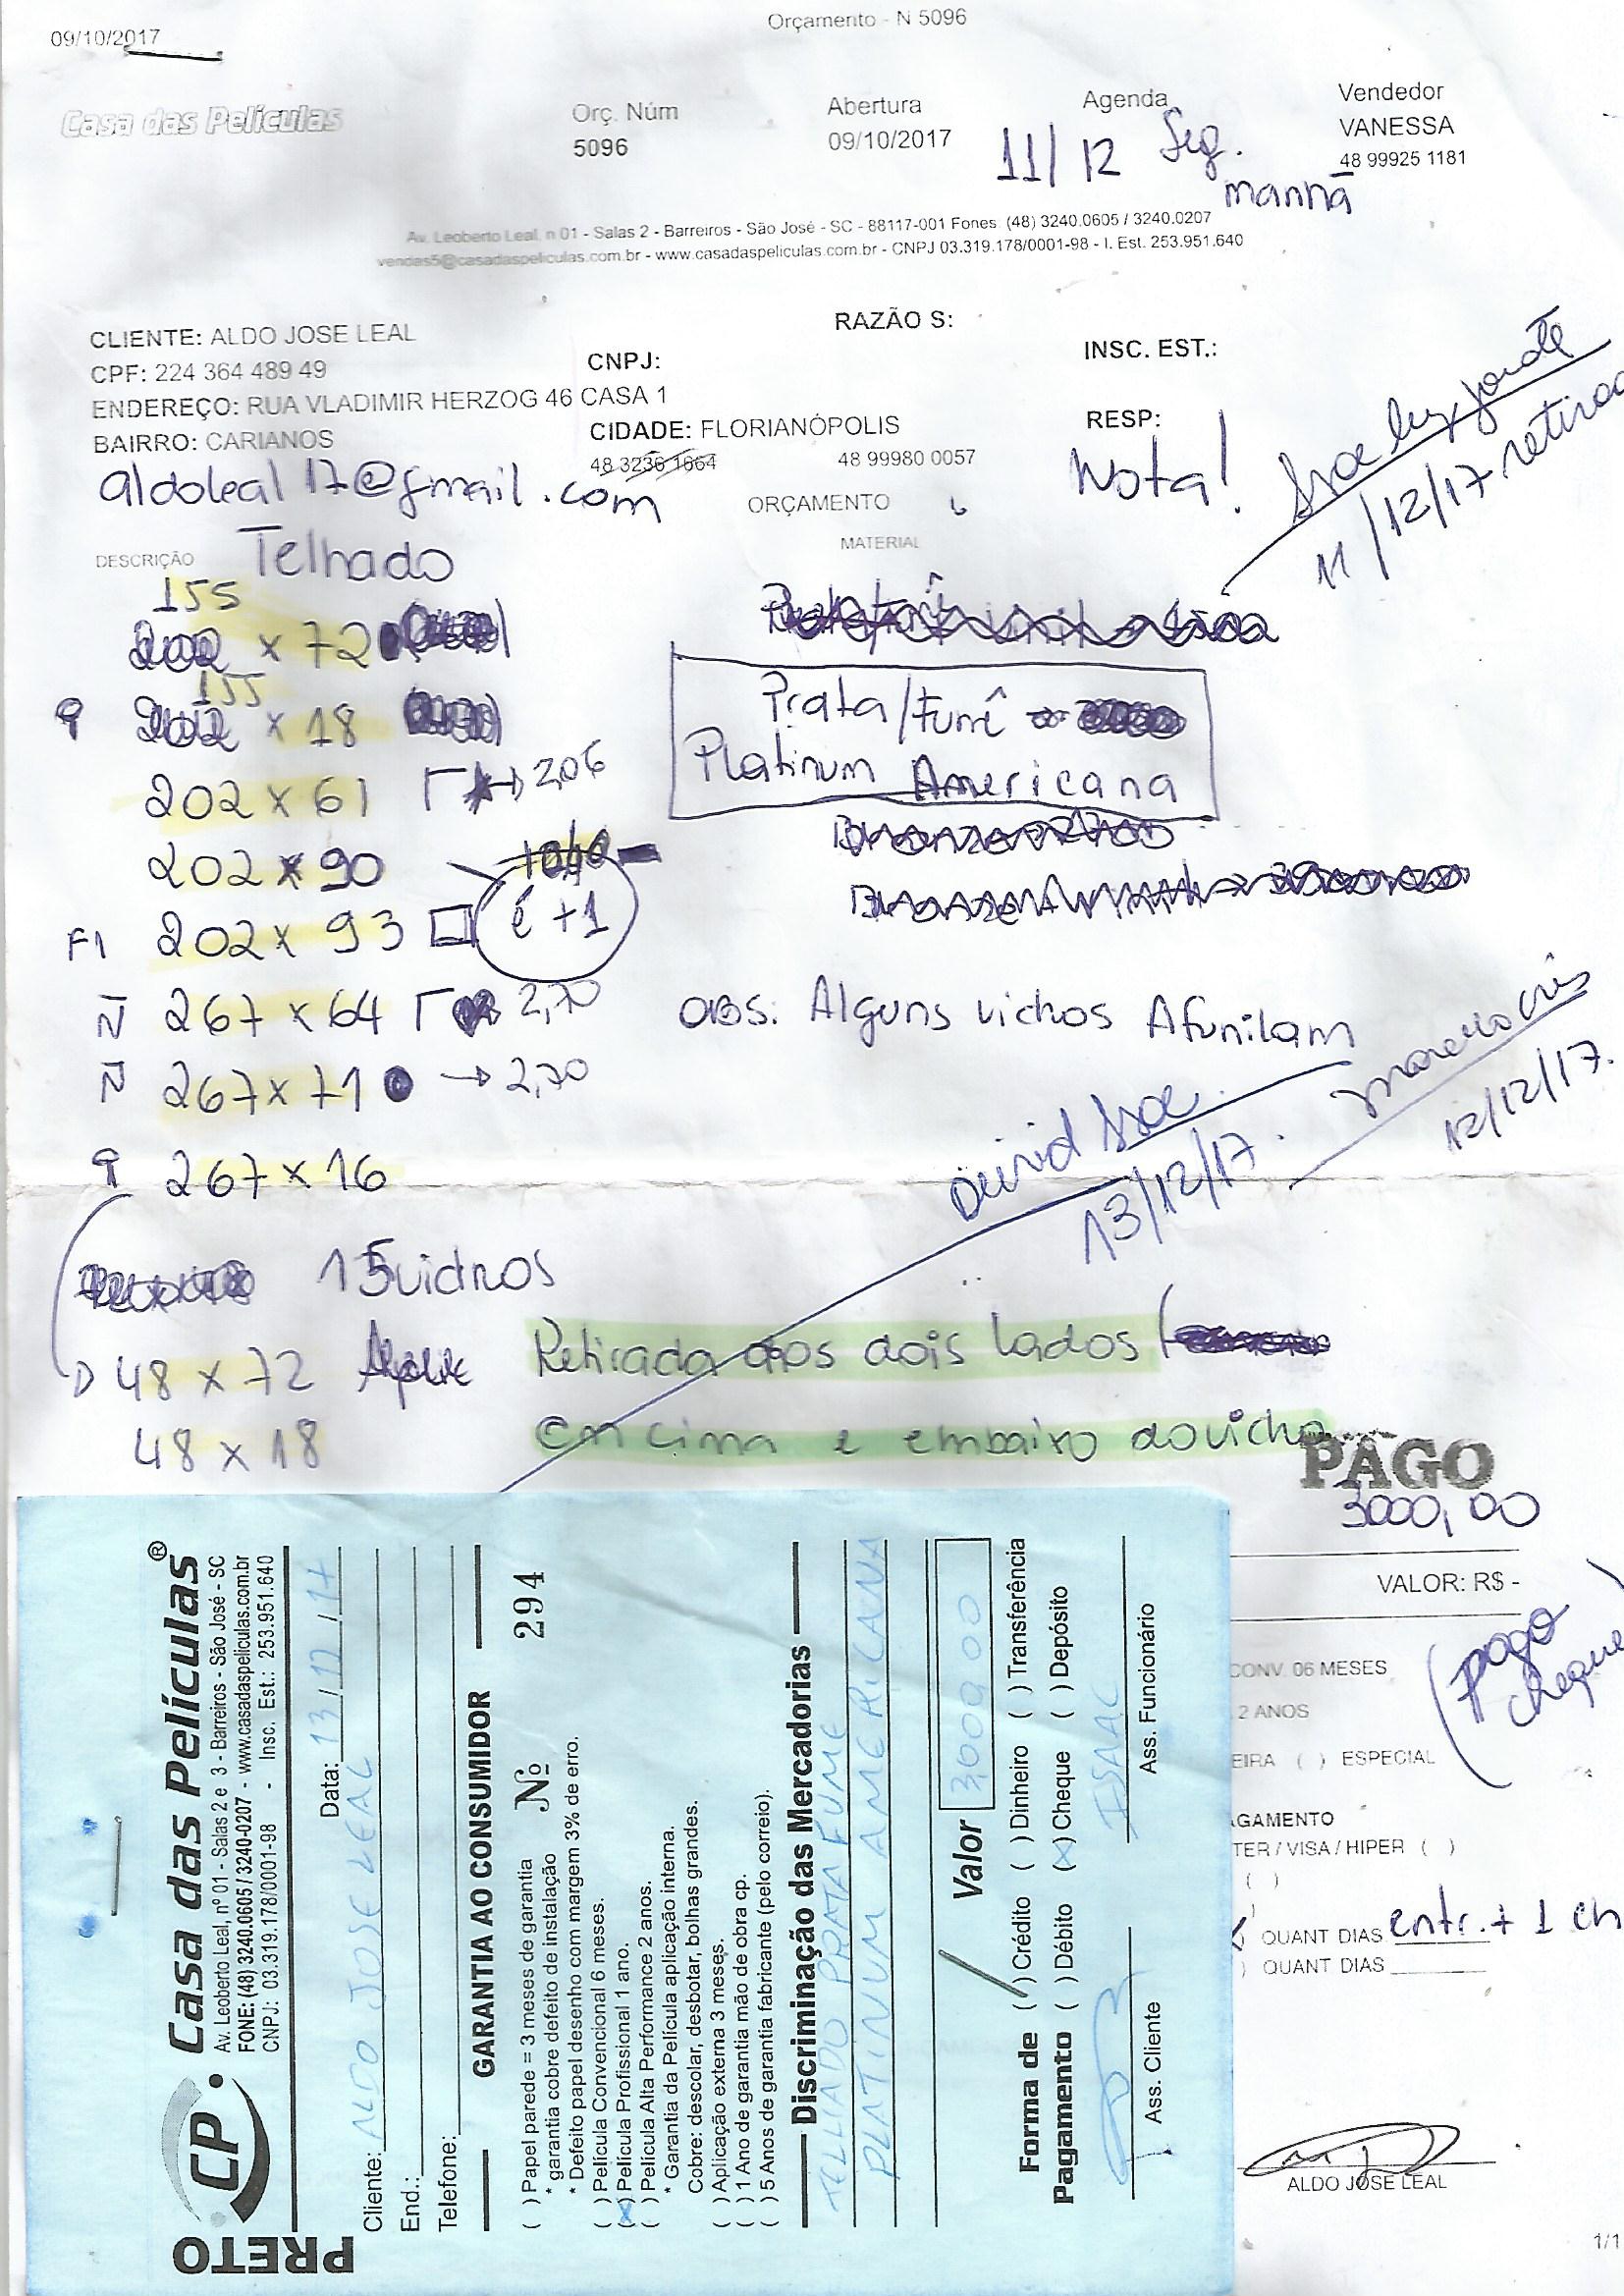 09/10/2017
Orçamento - N 5096
Casa das Películas
Orç. Núm
5096
Abertura
09/10/2017
Agenda
11/12 Seg.
manhã
Vendedor
VANESSA
48 99925 1181
Av. Leoberto Leal, n 01 - Salas 2 - Barreiros - São José - SC - 88117-001 Fones (48) 3240.0605 / 3240.0207
vendas5@casadaspeliculas.com.br - www.casadaspeliculas.com.br - CNPJ 03.319.178/0001-98 - I. Est. 253.951.640
CLIENTE: ALDO JOSE LEAL
CPF: 224 364 489 49
ENDEREÇO: RUA VLADIMIR HERZOG 46 CASA 1
BAIRRO: CARIANOS
CNPJ:
CIDADE: FLORIANÓPOLIS
48 3236 1664
48 99980 0057
RAZÃO S:
INSC. EST.:
RESP:
Nota!
11/12/17
aldoleal17@gmail.com
ORÇAMENTO
DESCRIÇÃO
Telhado
MATERIAL
155
202 x 72
155
202 x 18
202 x 61 → 2,06
202 x 90
é +1
F1 202 x 93
267 x 64 2,70
267 x 71 → 2,70
267 x 16
Prata/Fumê
Platinum Americana
OBS: Alguns vidros Afunilam
12/12/17.
13/12/17.
15 vidros
48 x 72
48 x 18
Retirada dos dois lados
em cima e embaixo do vidro
PAGO
3000,00
VALOR: R$ -
(pago
cheque)
CONV. 06 MESES
2 ANOS
EIRA ( ) ESPECIAL
GAMENTO
TER / VISA / HIPER ( )
( )
QUANT DIAS entr. + 1 ch
) QUANT DIAS
ALDO JOSE LEAL
1/1
PRETO
CP.
Casa das Películas®
Av. Leoberto Leal, nº 01 - Salas 2 e 3 - Barreiros - São José - SC
FONE: (48) 3240.0605 / 3240-0207 - www.casadaspeliculas.com.br
CNPJ: 03.319.178/0001-98 - Insc. Est.: 253.951.640
Data: 13/12/17
Cliente: ALDO JOSE LEAL
End.:
Telefone:
GARANTIA AO CONSUMIDOR
Nº 294
( ) Papel parede = 3 meses de garantia
* garantia cobre defeito de instalação
* Defeito papel desenho com margem 3% de erro.
( ) Película Convencional 6 meses.
(x) Película Profissional 1 ano.
( ) Película Alta Performance 2 anos.
* Garantia da Película aplicação interna.
Cobre: descolar, desbotar, bolhas grandes.
( ) Aplicação externa 3 meses.
( ) 1 Ano de garantia mão de obra cp.
( ) 5 Anos de garantia fabricante (pelo correio).
Discriminação das Mercadorias
TELHADO PRATA FUME
PLATINUM AMERICANA
Valor 3.000,00
Forma de Pagamento
( ) Crédito ( ) Dinheiro ( ) Transferência
( ) Débito (x) Cheque ( ) Depósito
ISAAC
Ass. Cliente
Ass. Funcionário